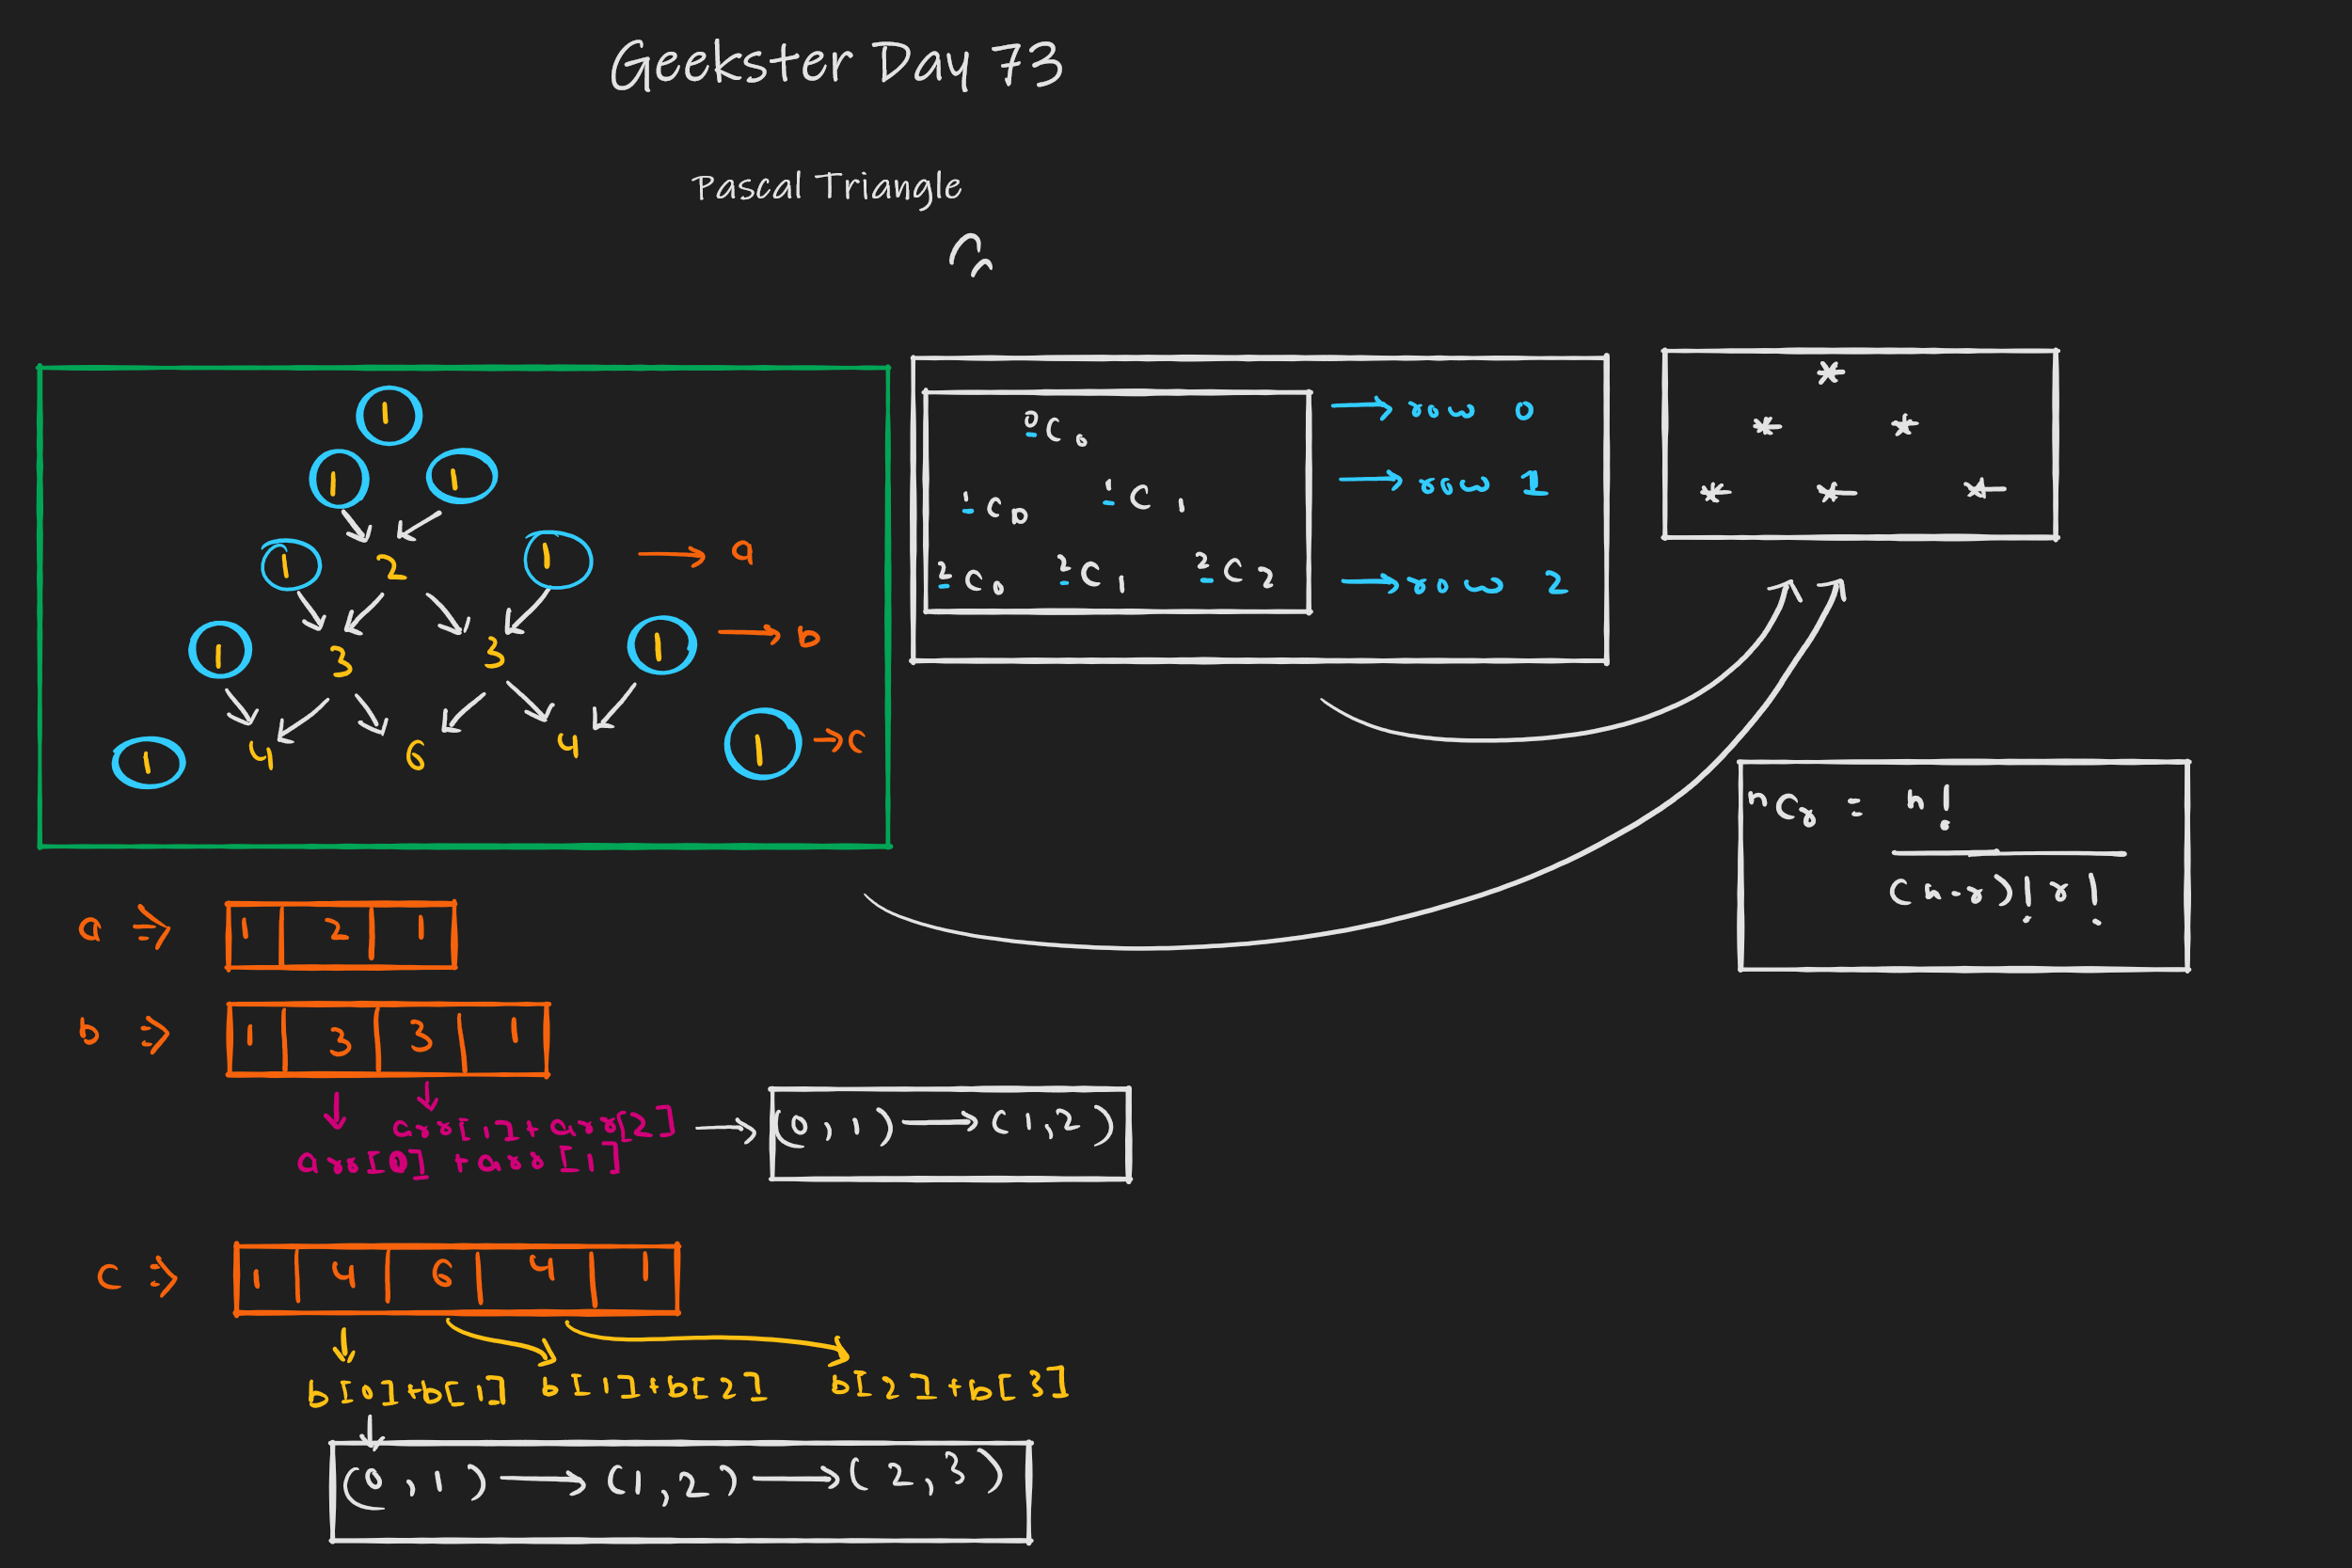 Geekster Day 73
Pascal Triangle
1
1 1
1 2 1 → a
1 3 3 1 → b
1 4 6 4 1 → c
⁰C₀ → row 0
¹C₀ ¹C₁ → row 1
²C₀ ²C₁ ²C₂ → row 2
*
* *
* * *
nCr = n!
(n-r)! r!
a ⇒ 1 2 1
b ⇒ 1 3 3 1
arr[1]+arr[2] → (0,1) → (1,2)
arr[0]+arr[1]
c ⇒ 1 4 6 4 1
b[0]+b[1] b[1]+b[2] b[2]+b[3]
(0,1) → (1,2) → (2,3)